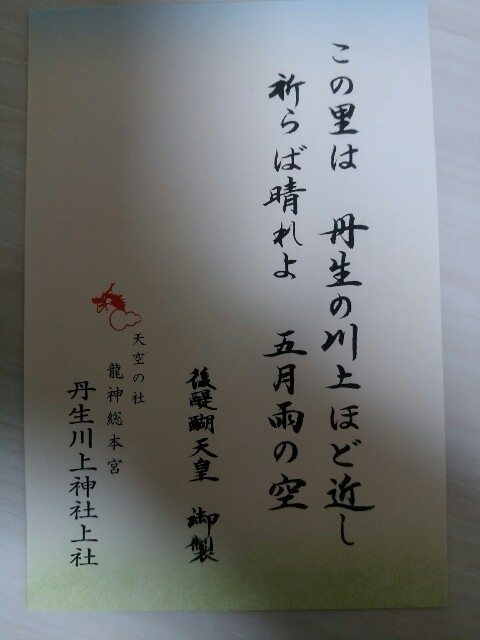 この里は 丹生の川上ほど近し
祈らば晴れよ 五月雨の空
後醍醐天皇 御製
天空の社
龍神総本宮
丹生川上神社上社